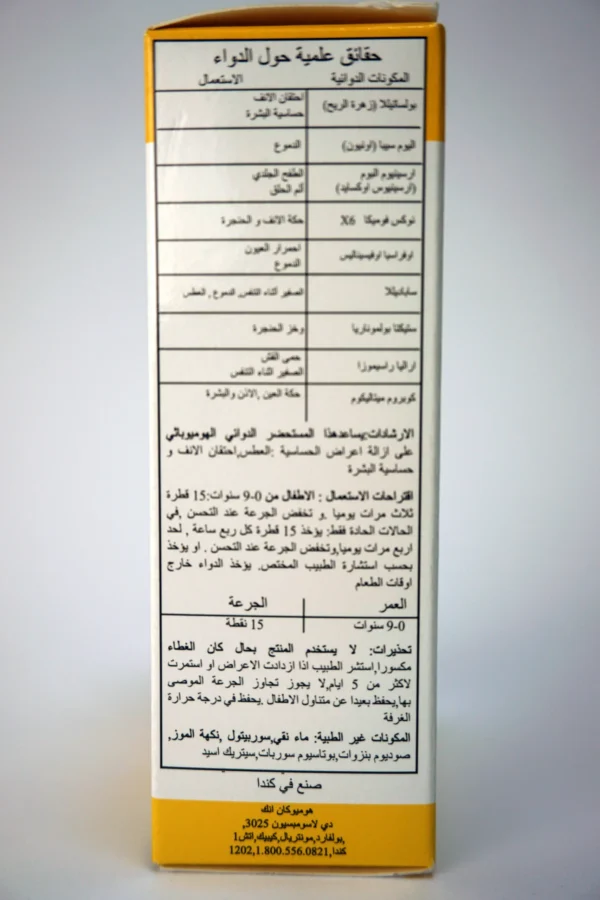 حقائق علمية حول الدواء
المكونات الدوائية الاستعمال
بولساتيللا (زهرة الريح) احتقان الانف
حساسية البشرة
اليوم سيبا (اونيون) الدموع
ارسينيوم اليوم الطفح الجلدي
(ارسينيوس اوكسايد) ألم الحلق
نوكس فوميكا X6 حكة الانف و الحنجرة
اوفراسيا اوفيسيناليس احمرار العيون
الدموع
ساباديللا الصفير أثناء التنفس, الدموع , العطس
ستيكتا بولموناريا وخز الحنجرة
اراليا راسيموزا حمى القش
الصفير اثناء التنفس
كوبروم ميتاليكوم حكة العين ,الاذن والبشرة
الارشادات:يساعدهذا المستحضر الدوائي الهوميوباثي
على ازالة اعراض الحساسية :العطس,احتقان الانف و
حساسية البشرة
اقتراحات الاستعمال : الاطفال من 0-9 سنوات:15 قطرة
ثلاث مرات يوميا .و تخفض الجرعة عند التحسن .في
الحالات الحادة فقط: يؤخذ 15 قطرة كل ربع ساعة , لحد
اربع مرات يوميا,وتخفض الجرعة عند التحسن . او يؤخذ
بحسب استشارة الطبيب المختص. يؤخذ الدواء خارج
اوقات الطعام
العمر الجرعة
0-9 سنوات 15 نقطة
تحذيرات: لا يستخدم المنتج بحال كان الغطاء
مكسورا,استشر الطبيب اذا ازدادت الاعراض او استمرت
لاكثر من 5 ايام,لا يجوز تجاوز الجرعة الموصى
بها,يحفظ بعيدا عن متناول الاطفال .يحفظ في درجة حرارة
الغرفة
المكونات غير الطبية: ماء نقي,سوربيتول ,نكهة الموز,
صوديوم بنزوات,بوتاسيوم سوربات,سيتريك اسيد
صنع في كندا
هوميوكان انك
دي لاسومبسيون 3025,
بولفارد,مونتريال,كيبيك,اتش1,
كندا,1202,1.800.556.0821